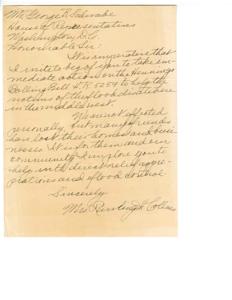 Mr. George B. Schwabe
House of Representatives
Washington, D.C.
Honorable Sir:
It is imperative that
I write to beg of you to take im-
mediate action on the Hennings
Bolling Bill H.R. 5259 to help the
victims of the flood disaster here
in the middle west.
We are not affected
personally but many friends
have lost their homes and busi-
nesses. It is for them and our
community I implore you to
help with direct relief appro-
priations and flood control.
Sincerely
Mrs